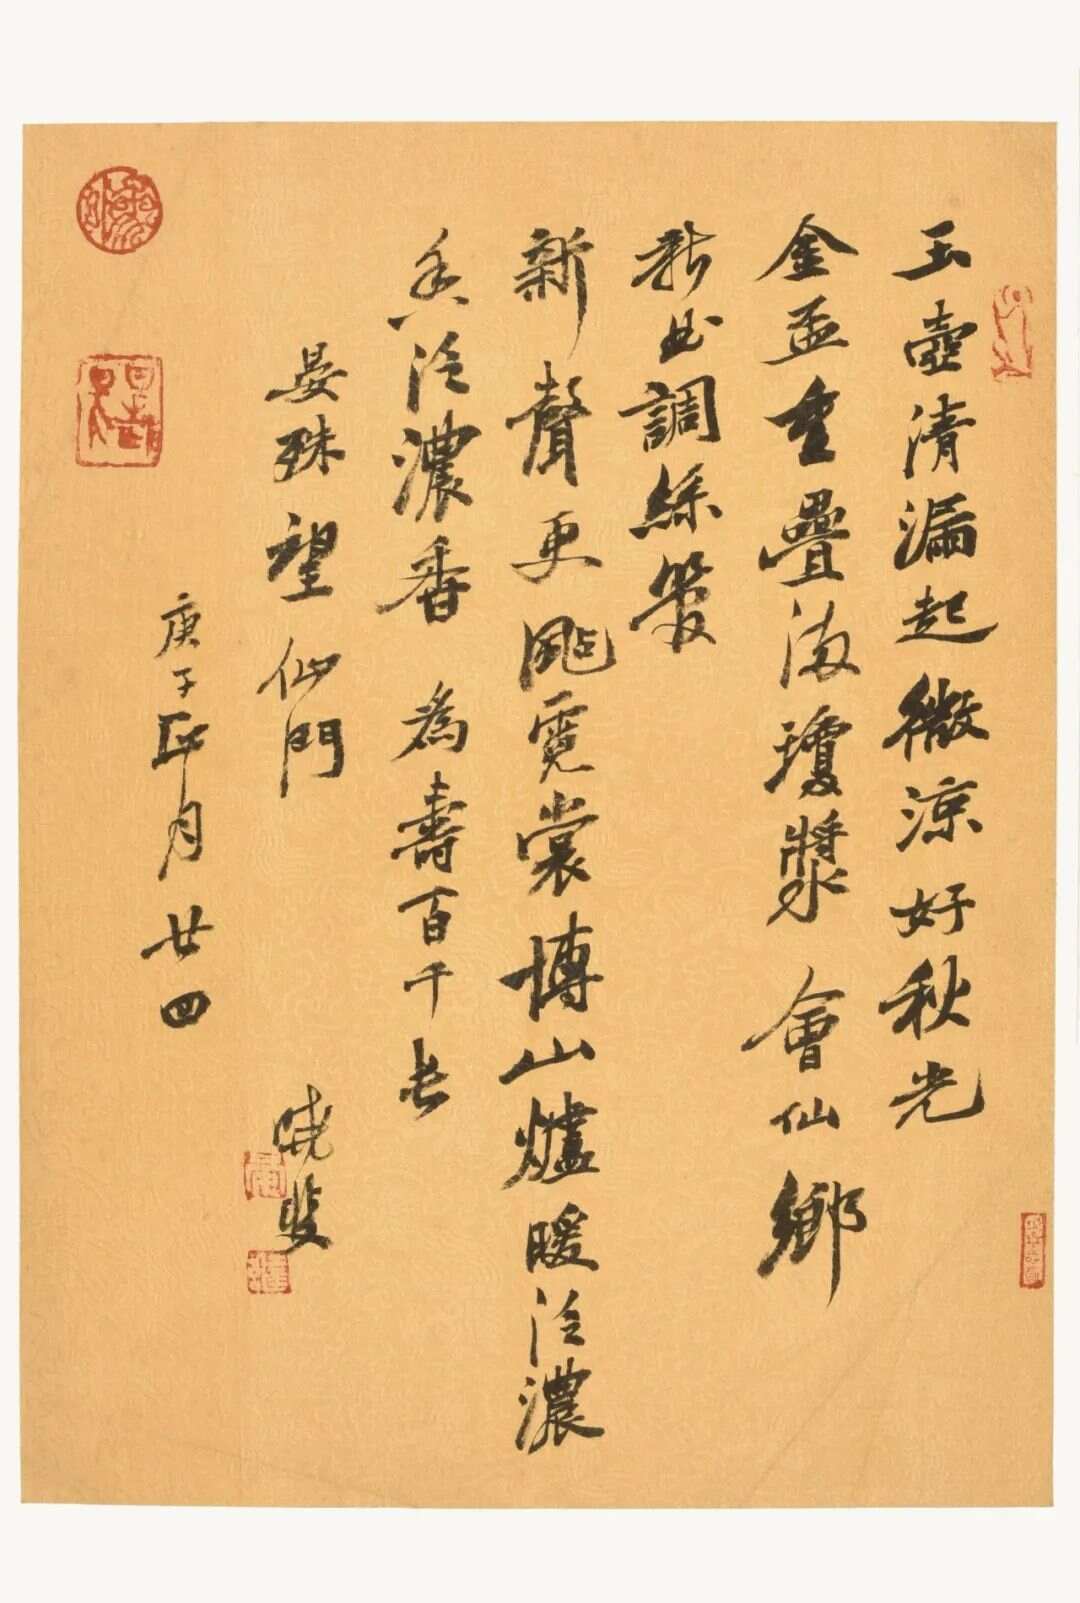 玉壺清漏起微涼好秋光
金盃重疊滿瓊漿 會仙鄉
新曲調絲管
新聲更颭霓裳博山爐暖泛濃
香泛濃香 為壽百千長
晏殊望仙門 曉
庚子 月廿四